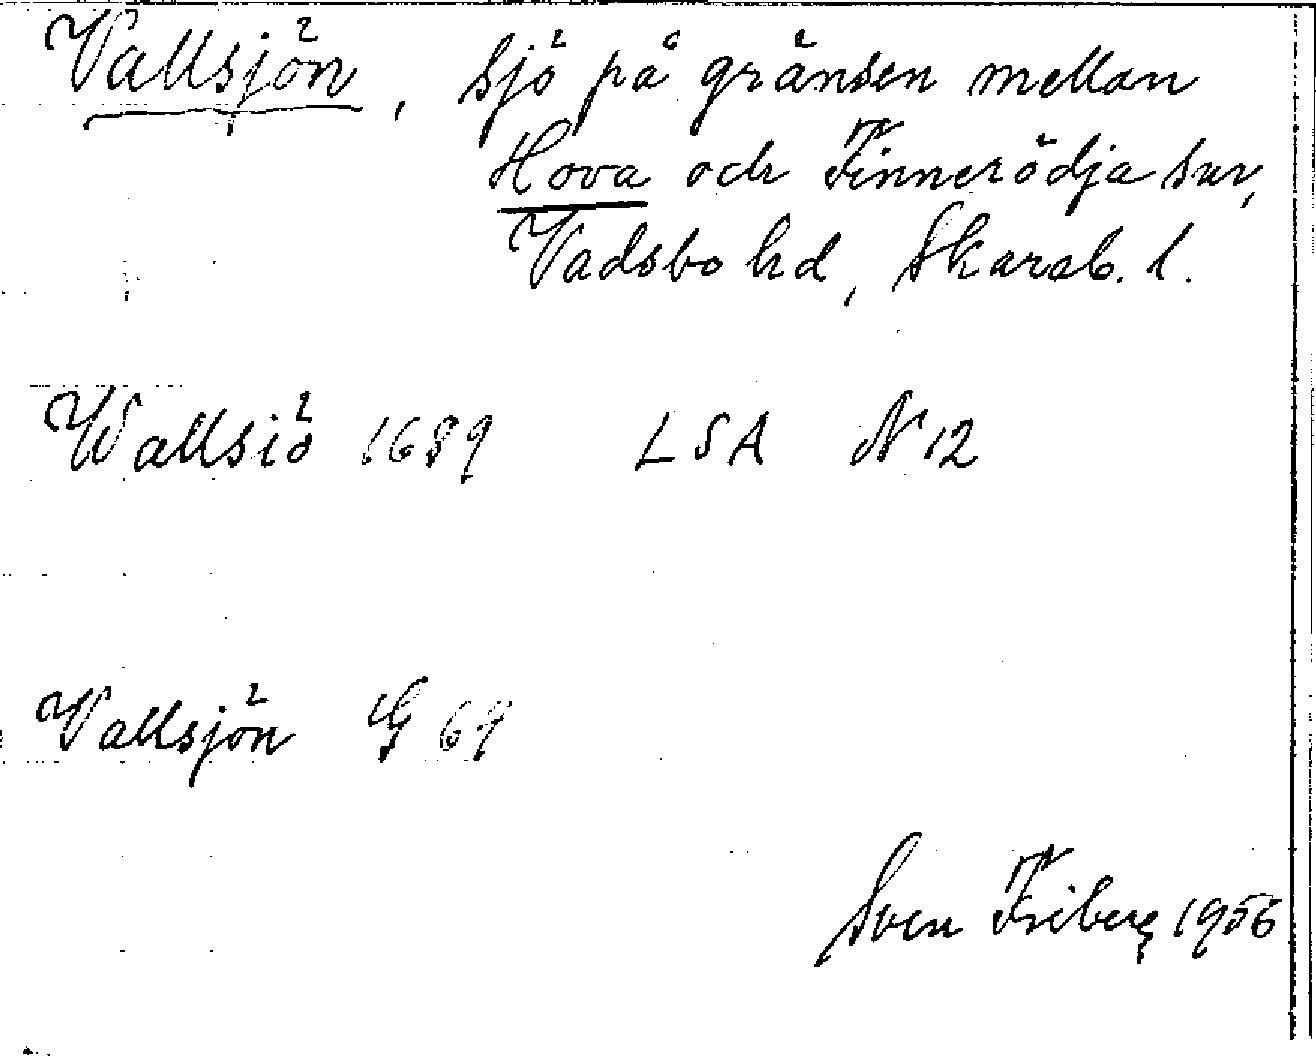 Vallsjön, sjö på gränsen mellan
Hova och Finnerödja snr,
Vadsbo hd, Skarab. l.
Wallsiö 1689 LSA N12
Vallsjön G 69
Sven Friberg 1956